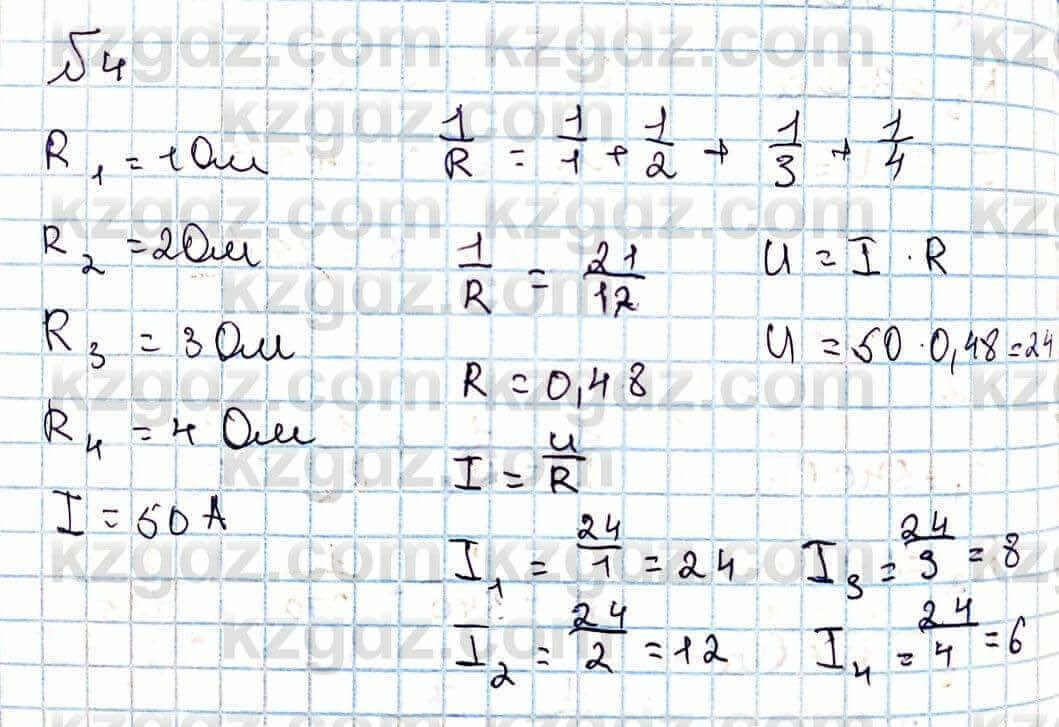 №4
R₁ = 1 Ом
R₂ = 2 Ом
R₃ = 3 Ом
R₄ = 4 Ом
I = 50 А
1/R = 1/1 + 1/2 + 1/3 + 1/4
1/R = 21/12
R = 0,48
I = U/R
I₁ = 24/1 = 24
I₂ = 24/2 = 12
U = I · R
U = 50 · 0,48 = 24
I₃ = 24/3 = 8
I₄ = 24/4 = 6
kzgdz.com